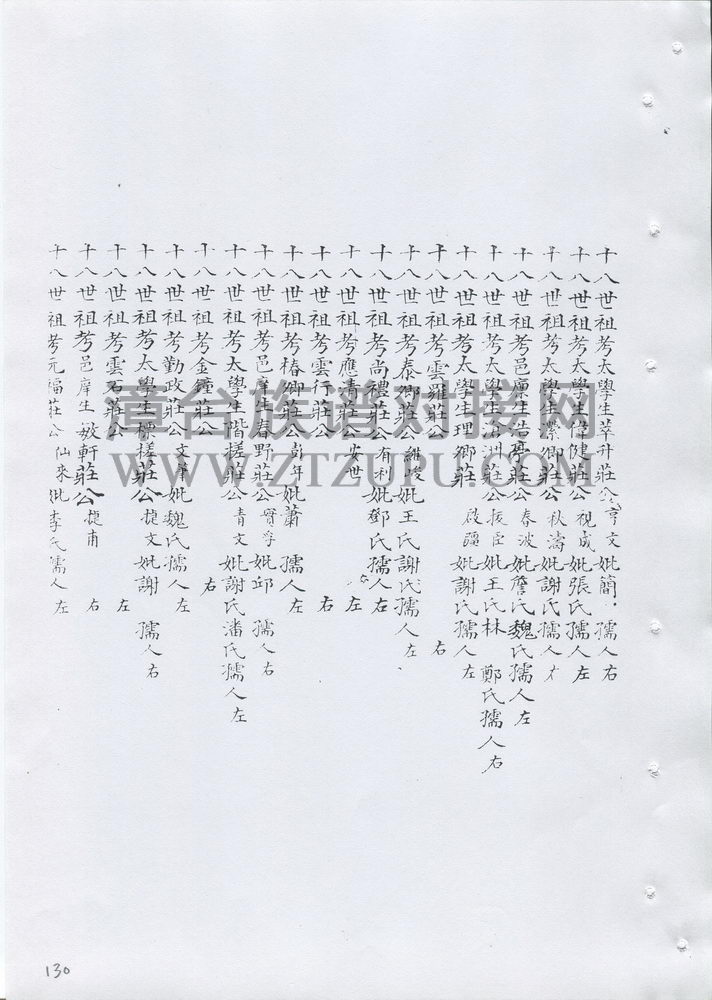 十八世祖考太學生萃升莊公亨文妣簡 孺人右
十八世祖考太學生偉健莊公視成妣張氏孺人左
十八世祖考太學生瀠卿莊公秋濤妣謝氏孺人
十八世祖考邑廩生浩亭莊公春波妣詹氏魏氏孺人左
十八世祖考太學生 洲莊公援臣妣王氏林 鄭氏孺人右
十八世祖考太學生理卿莊 啟疆妣謝氏孺人左
十八世祖考雲羅莊公 右
十八世祖考泰卿莊公 妣王氏謝氏孺人左
十八世祖考尚禮莊公有利妣鄧氏孺人右
十八世祖考應清莊公安世 左
十八世祖考雲行莊公 右
十八世祖考椿卿莊公彭年妣蕭 孺人左
十八世祖考邑庠生春野莊公實孚妣邱 孺人右
十八世祖考太學生階槎莊公青文妣謝氏潘氏孺人左
十八世祖考金鐘莊公 右
十八世祖考勤政莊公文 妣魏氏孺人左
十八世祖考太學生標槎莊公捷文妣謝 孺人右
十八世祖考雲石莊公 左
十八世祖考邑庠生敏軒莊公捷甫 右
十八世祖考元福莊公仙來妣李氏孺人左
漳台族谱对接网
WWW.ZTZUPU.COM
130